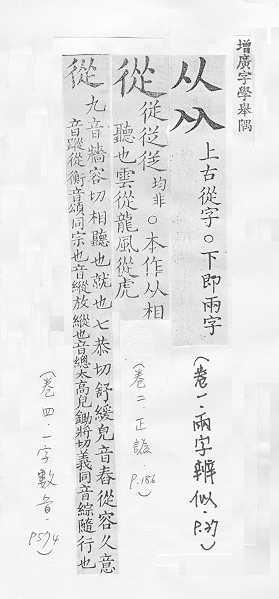 增廣字學舉隅
从𠓜上古從字。下即兩字
(卷一.兩字辨似.P.37)
從 均非。本作从相
聽也雲從龍風從虎
(卷二.正譌.P.186)
從 九音牆容切相聽也就也七恭切舒緩皃音舂從容久意
音蹤從衡音頌同宗也音縱放縱也音總太高皃鋤將切義同音綜隨行也
(卷四.一字數音.P574)